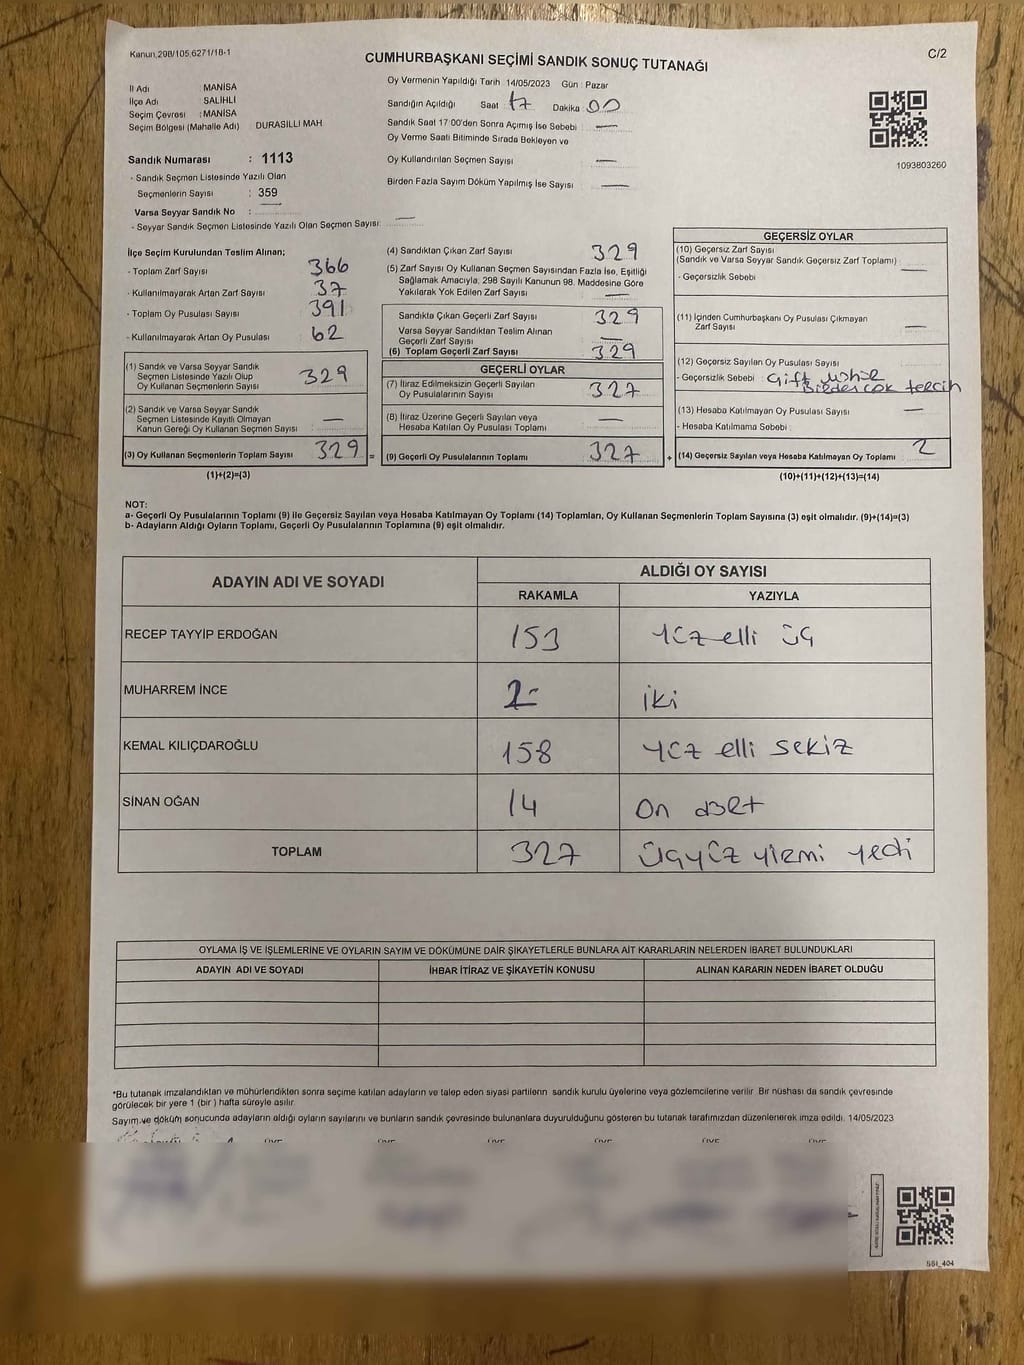 Kanun,298/105,6271/18-1
CUMHURBAŞKANI SEÇİMİ SANDIK SONUÇ TUTANAĞI
C/2
İl Adı : MANİSA
İlçe Adı SALİHLİ
Seçim Çevresi : MANİSA
Seçim Bölgesi (Mahalle Adı) DURASILLI MAH
Sandık Numarası : 1113
- Sandık Seçmen Listesinde Yazılı Olan
Seçmenlerin Sayısı : 359
Varsa Seyyar Sandık No : —
- Seyyar Sandık Seçmen Listesinde Yazılı Olan Seçmen Sayısı: —
Oy Vermenin Yapıldığı Tarih 14/05/2023 Gün : Pazar
Sandığın Açıldığı Saat 17 Dakika 00
Sandık Saat 17:00'den Sonra Açımış İse Sebebi —
Oy Verme Saati Bitiminde Sırada Bekleyen ve
Oy Kullandırılan Seçmen Sayısı —
Birden Fazla Sayım Döküm Yapılmış İse Sayısı —
1093803260
İlçe Seçim Kurulundan Teslim Alınan;
- Toplam Zarf Sayısı 366
- Kullanılmayarak Artan Zarf Sayısı 37
- Toplam Oy Pusulası Sayısı 391
- Kullanılmayarak Artan Oy Pusulası 62
(1) Sandık ve Varsa Seyyar Sandık
Seçmen Listesinde Yazılı Olup
Oy Kullanan Seçmenlerin Sayısı 329
(2) Sandık ve Varsa Seyyar Sandık
Seçmen Listesinde Kayıtlı Olmayan
Kanun Gereği Oy Kullanan Seçmen Sayısı —
(3) Oy Kullanan Seçmenlerin Toplam Sayısı 329 =
(1)+(2)=(3)
(4) Sandıktan Çıkan Zarf Sayısı 329
(5) Zarf Sayısı Oy Kullanan Seçmen Sayısından Fazla İse, Eşitliği
Sağlamak Amacıyla, 298 Sayılı Kanunun 98. Maddesine Göre
Yakılarak Yok Edilen Zarf Sayısı —
Sandıkta Çıkan Geçerli Zarf Sayısı 329
Varsa Seyyar Sandıktan Teslim Alınan
Geçerli Zarf Sayısı —
(6) Toplam Geçerli Zarf Sayısı 329
GEÇERLİ OYLAR
(7) İtiraz Edilmeksizin Geçerli Sayılan
Oy Pusulalarının Sayısı 327
(8) İtiraz Üzerine Geçerli Sayılan veya
Hesaba Katılan Oy Pusulası Toplamı —
(9) Geçerli Oy Pusulalarının Toplamı 327 +
GEÇERSİZ OYLAR
(10) Geçersiz Zarf Sayısı
(Sandık ve Varsa Seyyar Sandık Geçersiz Zarf Toplamı) —
- Geçersizlik Sebebi
(11) İçinden Cumhurbaşkanı Oy Pusulası Çıkmayan
Zarf Sayısı —
(12) Geçersiz Sayılan Oy Pusulası Sayısı
- Geçersizlik Sebebi Çift mühür
Birden çok tercih
(13) Hesaba Katılmayan Oy Pusulası Sayısı —
- Hesaba Katılmama Sebebi
(14) Geçersiz Sayılan veya Hesaba Katılmayan Oy Toplamı 2
(10)+(11)+(12)+(13)=(14)
NOT:
a- Geçerli Oy Pusulalarının Toplamı (9) ile Geçersiz Sayılan veya Hesaba Katılmayan Oy Toplamı (14) Toplamları, Oy Kullanan Seçmenlerin Toplam Sayısına (3) eşit olmalıdır. (9)+(14)=(3)
b- Adayların Aldığı Oyların Toplamı, Geçerli Oy Pusulalarının Toplamına (9) eşit olmalıdır.
ADAYIN ADI VE SOYADI ALDIĞI OY SAYISI
RAKAMLA YAZIYLA
RECEP TAYYİP ERDOĞAN 153 Yüz elli üç
MUHARREM İNCE 2- iki
KEMAL KILIÇDAROĞLU 158 yüz elli sekiz
SİNAN OĞAN 14 on dört
TOPLAM 327 üçyüz yirmi yedi
OYLAMA İŞ VE İŞLEMLERİNE VE OYLARIN SAYIM VE DÖKÜMÜNE DAİR ŞİKAYETLERLE BUNLARA AİT KARARLARIN NELERDEN İBARET BULUNDUKLARI
ADAYIN ADI VE SOYADI İHBAR İTİRAZ VE ŞİKAYETİN KONUSU ALINAN KARARIN NEDEN İBARET OLDUĞU
*Bu tutanak imzalandıktan ve mühürlendikten sonra seçime katılan adayların ve talep eden siyasi partilerin sandık kurulu üyelerine veya gözlemcilerine verilir. Bir nüshası da sandık çevresinde
görülecek bir yere 1 (bir) hafta süreyle asılır.
Sayım ve döküm sonucunda adayların aldığı oyların sayılarını ve bunların sandık çevresinde bulunanlara duyurulduğunu gösteren bu tutanak tarafımızdan düzenlenerek imza edildi. 14/05/2023
SSI_404